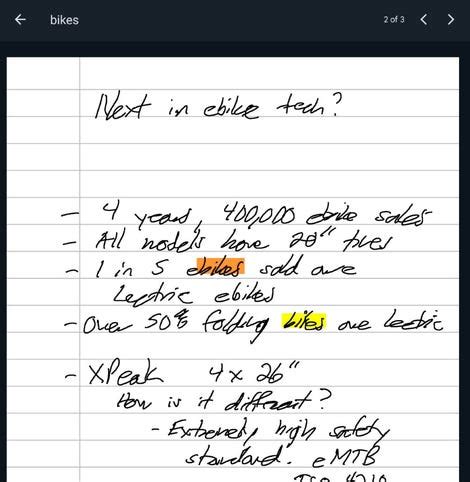 bikes
2 of 3
Next in ebike tech?
- 4 years, 400,000 ebike sales
- All models have 20" tires
- 1 in 5 ebikes sold are
Lectric ebikes
- Over 50% folding bikes are lectric
- XPeak 4 x 26"
How is it different?
- Extremely high safety
standard. eMTB